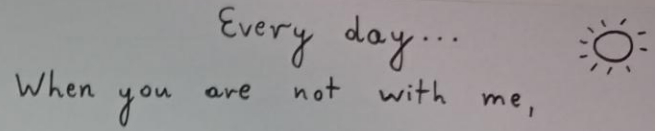 Every day...
When you are not with me,